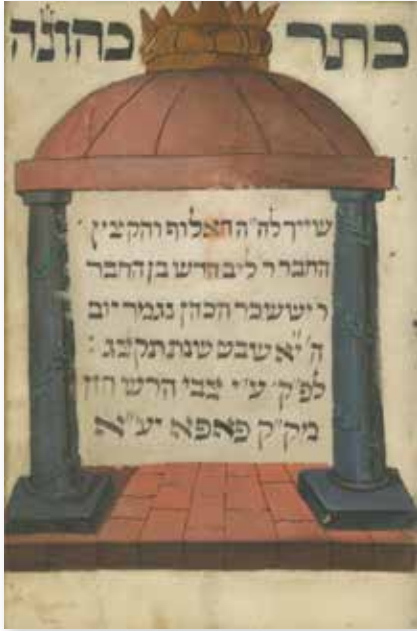 כתר כהונה
שייך לה"ה האלוף והקצין
החבר ר ליב הרש בן החבר
ר יששכר הכהן נגמר יום
ה' י"א שבט שנת תקצג :
לפ"ק ע"י צבי הרש חזן
מק"ק פאפא יע"א